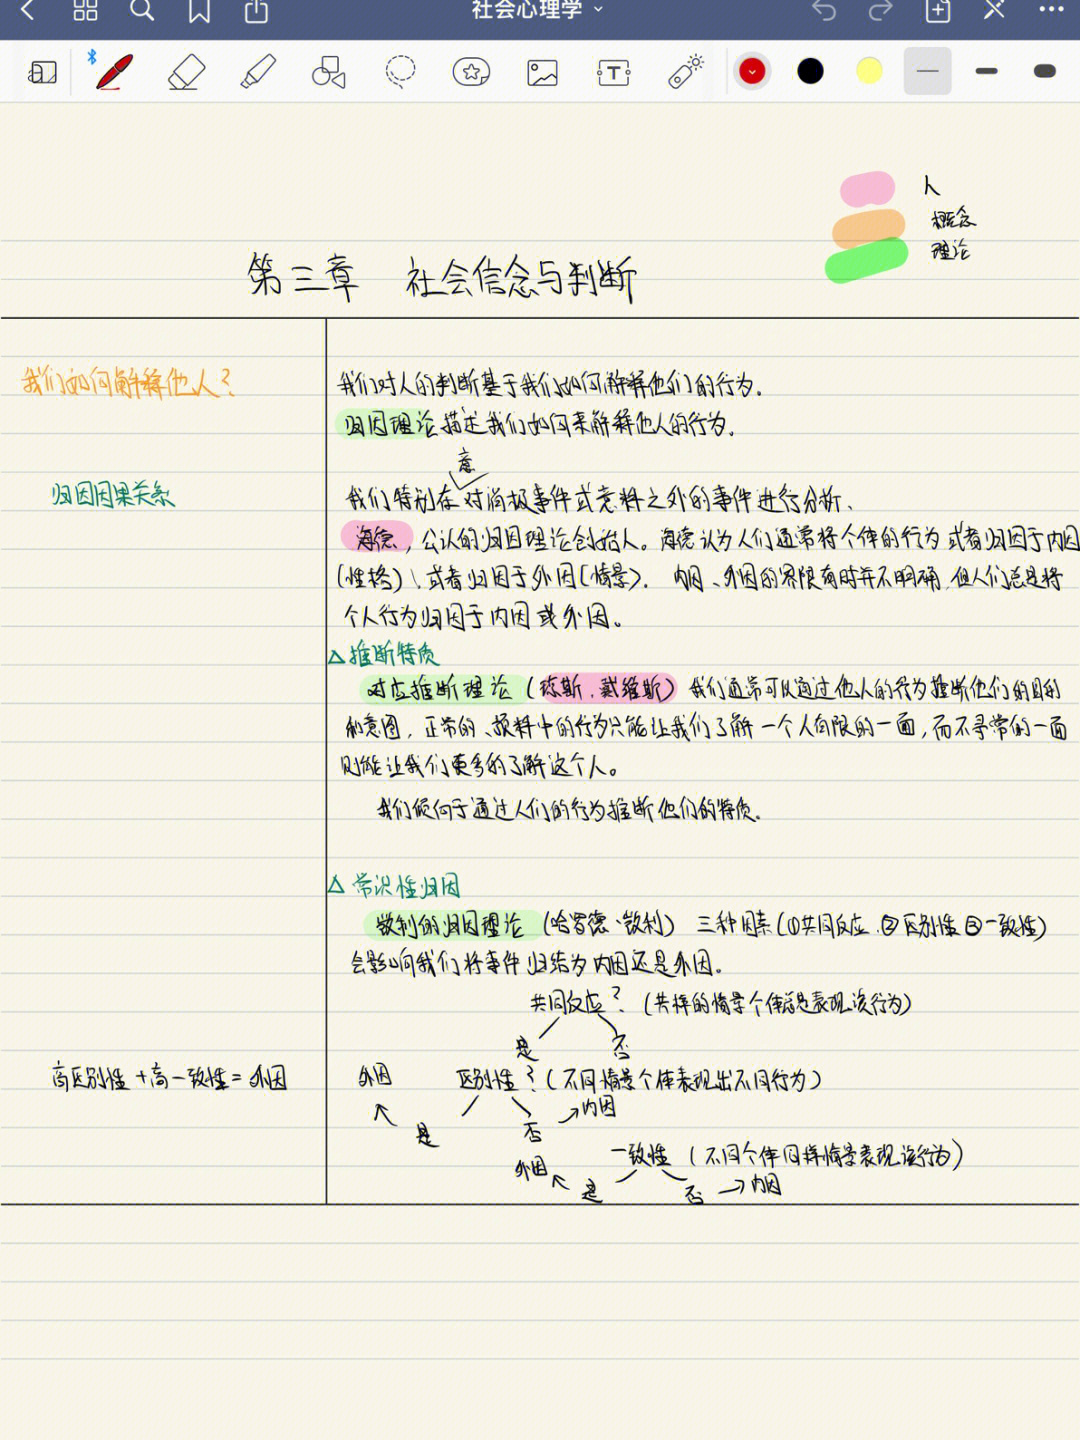 社会心理学
人
概念
理论
第三章 社会信念与判断
我们如何解释他人?
我们对人的判断基于我们如何解释他们的行为.
归因理论描述我们如何来解释他人的行为.
意
归因因果关系
我们特别在对消极事件或意料之外的事件进行分析、
海德,公认的归因理论创始人。海德认为人们通常将个体的行为或者归因于内因
(性格)、或者归因于外因(情景). 内因、外因的界限有时并不明确,但人们总是将
个人行为归因于内因或外因。
△推断特质
对应推断理论(琼斯.戴维斯)我们通常可以通过他人的行为推断他们的目的
和意图,正常的、预料中的行为只能让我们了解一个人有限的一面,而不寻常的一面
则能让我们更多的了解这个人。
我们倾向于通过人们的行为推断他们的特质.
△常识性归因
凯利的归因理论(哈罗德·凯利) 三种因素(①共同反应.②区别性③一致性)
会影响我们将事件归结为内因还是外因。
共同反应?(共样的情景个体总是表现该行为)
是 否
高区别性+高一致性=外因
外因 区别性?(不同情景个体表现出不同行为)
是 否 →内因
外因 一致性(不同个体同样情景表现该行为)
是 否 →内因